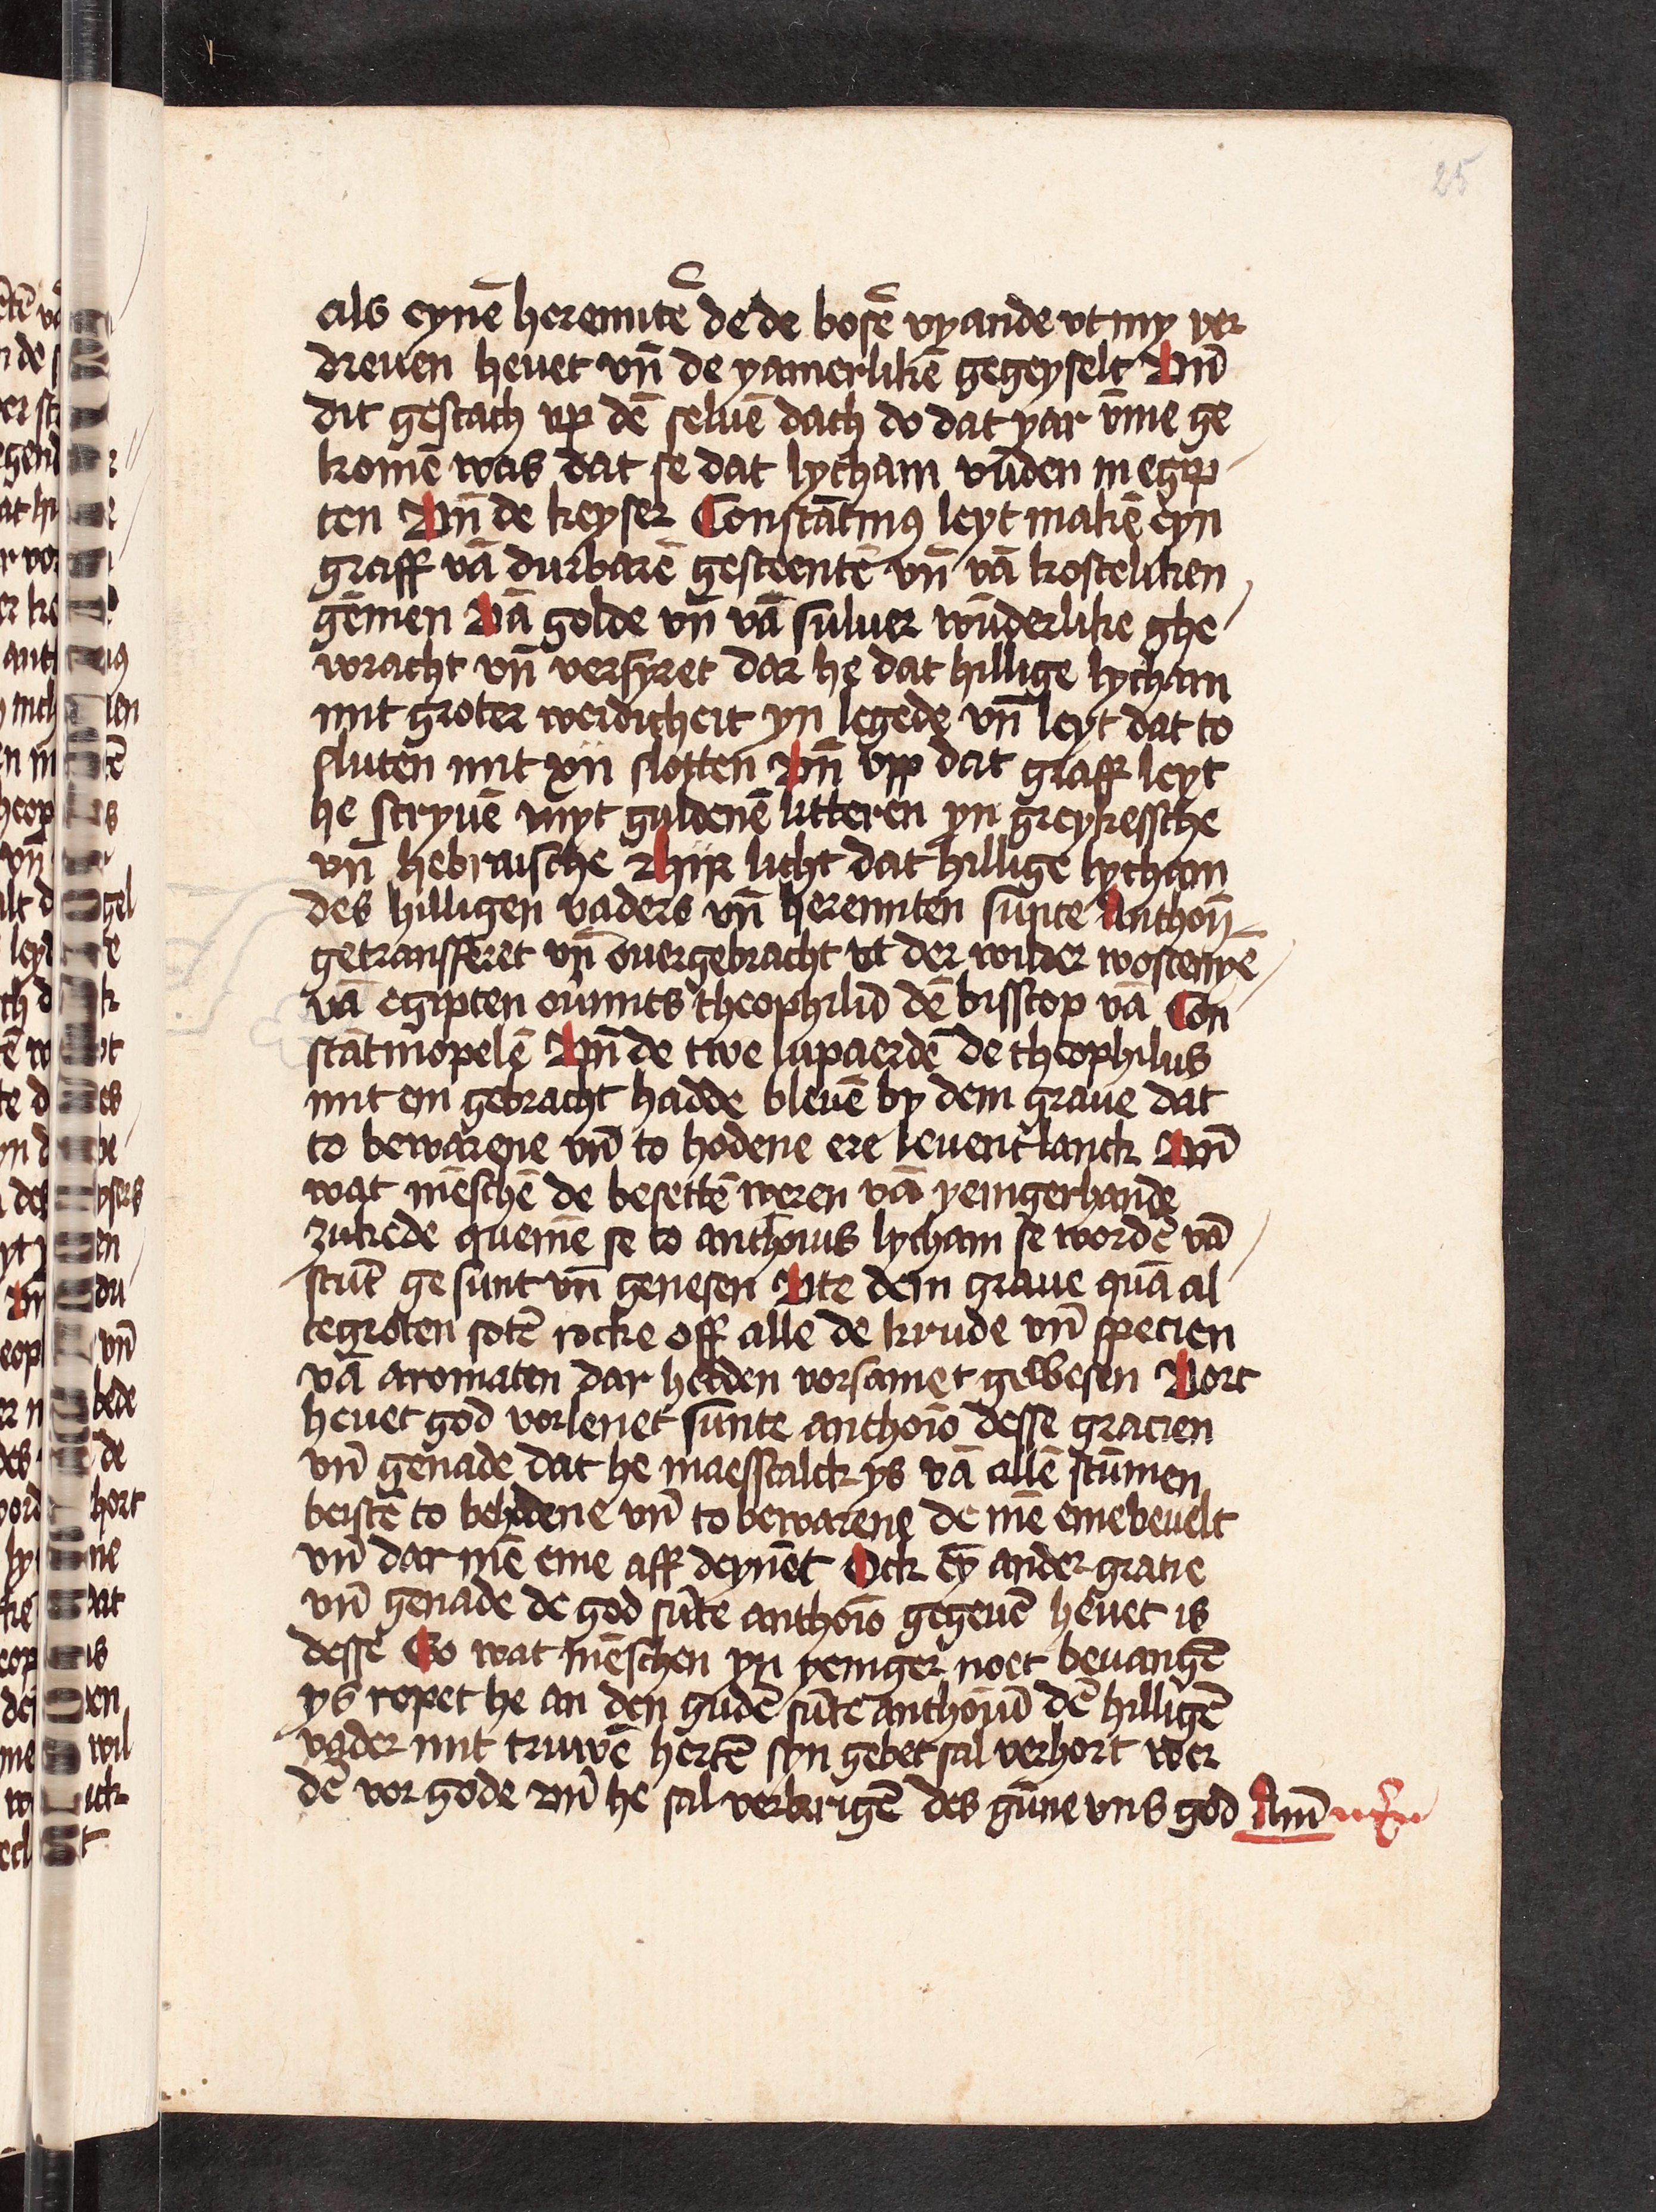 25
als eynē heremitē de de bosē vyande vt my ver
dreuen heuet vn̄ de yamerlikē gegeyselt Vn̄
dit gescach vp dē seluē dach do dat yar v̄me ge
komē was dat se dat lycham vūden in egip
ten Vn̄ de keyser Constātinꝰ leyt makē eyn
graff vā durbarē gesteentē vn̄ vā kosteliken
gēmen Vā golde vn̄ vā suluer wūderlike ghe
wracht vn̄ versyret dar he dat hillige lycham
mit groter werdicheit yn legede vn̄ leyt dat to
sluten mit xii slotten Vn̄ vpp dat graff leyt
he scryuē myt guldenē litteren yn greykessche
vn̄ hebraische Hiir licht dat hillige lycham
des hilligen vaders vn̄ heremiten sunte Anthonii
getransfferet vn̄ ouergebracht vt der wilder wostenye
vā egipten ouermits theophilū dē bisscop vā Con
stātinopelē Vn̄ de twe lupaerdē de theophilus
mit em gebracht hadde bleuē by dem graue dat
to bewarene vn̄ to hodene ere leuent lanck Vn̄
wat mēschē de besettē weren vā yenigerhande
zukede quemē se to anthonius lycham se wordē vā
stūt ge sunt vn̄ genesen Vte dem graue quā al
tegroten sotē rocke off alle de krude vn̄ specien
vā aromaten dar hedden vorsamet gewesen Vort
heuet god vorlenet sunte anthoīo desse gracien
vn̄ genade dat he maesscalck ys vā allē stūmen
beistē to behodene vn̄ to bewarene de mē eme beuelt
vn̄ dar mē eme aff deynēt Ock eȳ ander gratie
vn̄ genade de god sūte anthoīo gegeuē heuet is
desse So wat mēschen yn yeniger noet beuangē
ys ropet he an den gudē sūte anthoniū dē hilligē
vader mit truwē hertē syn gebet sal verhort wer
dē vor gode vn̄ he sal verkrigē des gūne vns god Am̄